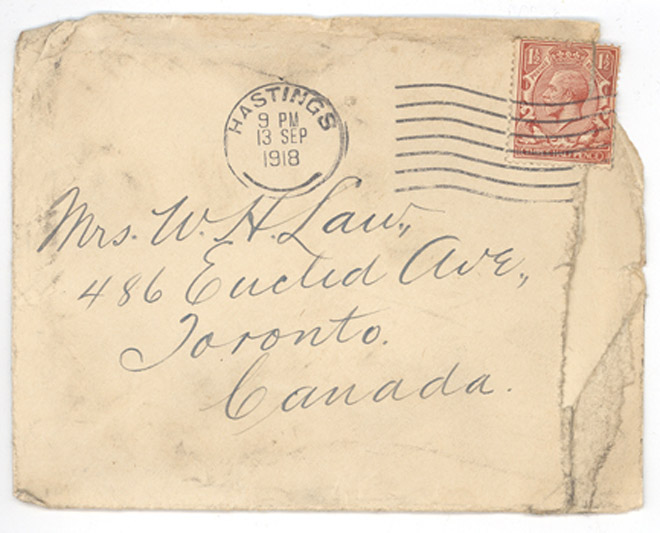 HASTINGS
9 PM
13 SEP
1918
1½ 1½
THREE HALFPENCE
Mrs. W. H. Law,
486 Euclid Ave.,
Toronto.
Canada.